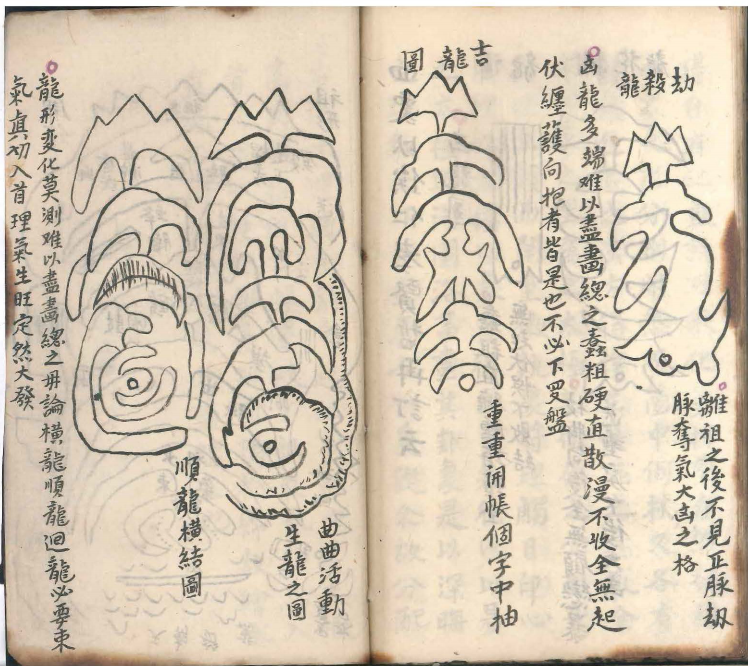 劫殺龍
離祖之後不見正脉劫
脉奪氣大凶之格
凶龍多端难以盡畫緫之蠢粗硬直散漫不收全無起
伏纏護向抱者皆是也不必下羅盤
吉龍圖
重重開帳個字中抽
曲曲活動
生龍之圖
順龍橫結圖
龍形变化莫測难以盡畫緫之毋論橫龍順龍迴龍必要束
氣真切入首理氣生旺定然大發